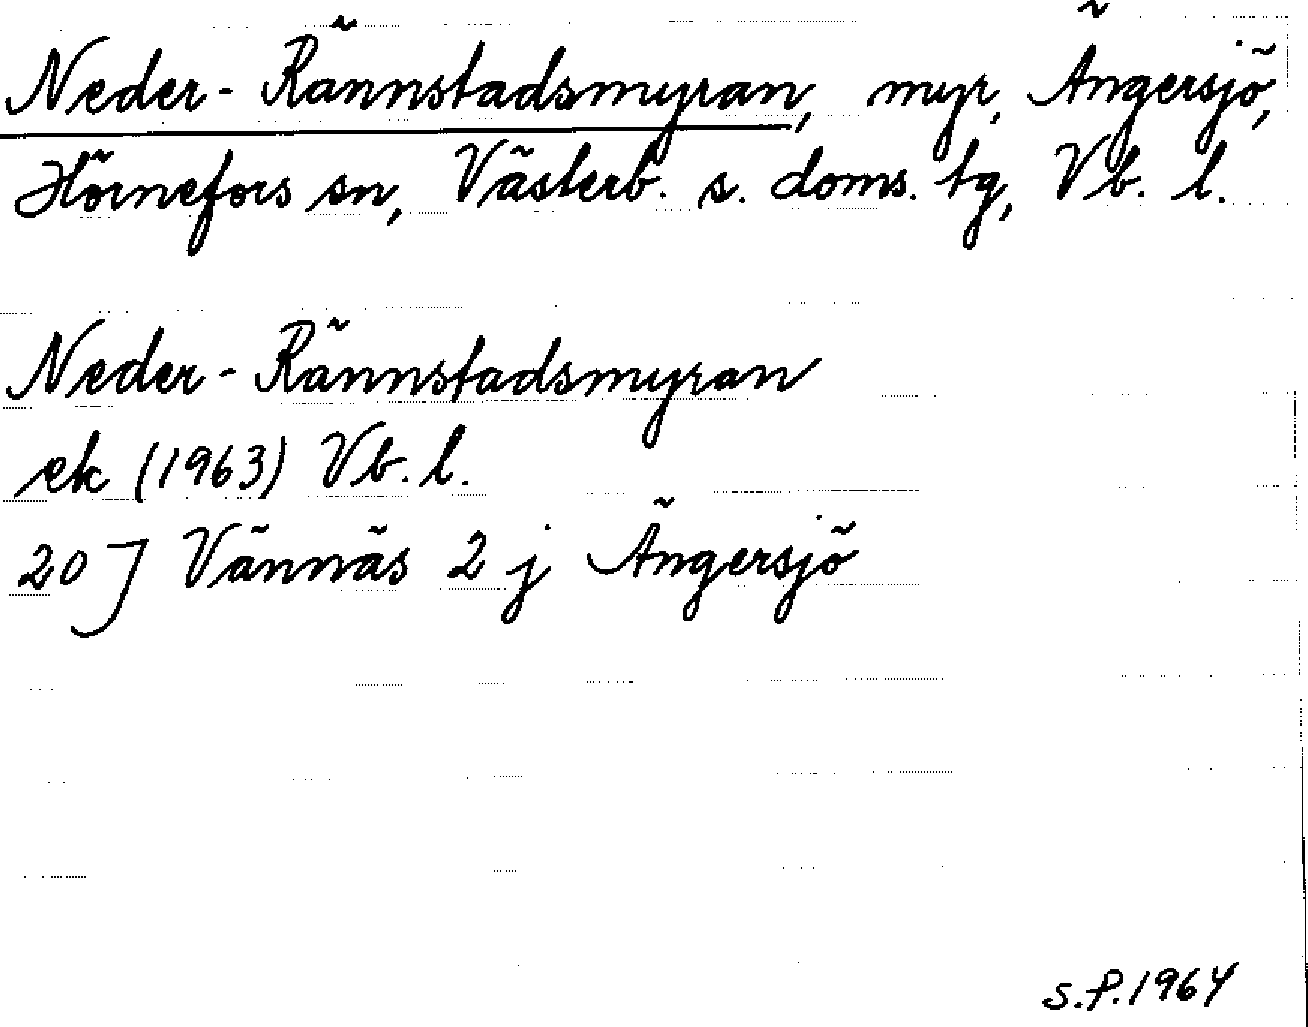 Neder-Rännstadsmyran, myr, Ängersjö,
Hörnefors sn, Västerb. s. doms. tg, Vb. l.
Neder-Rännstadsmyran
ek (1963) Vb. l.
20 J Vännäs 2 j Ängersjö
S.P. 1964